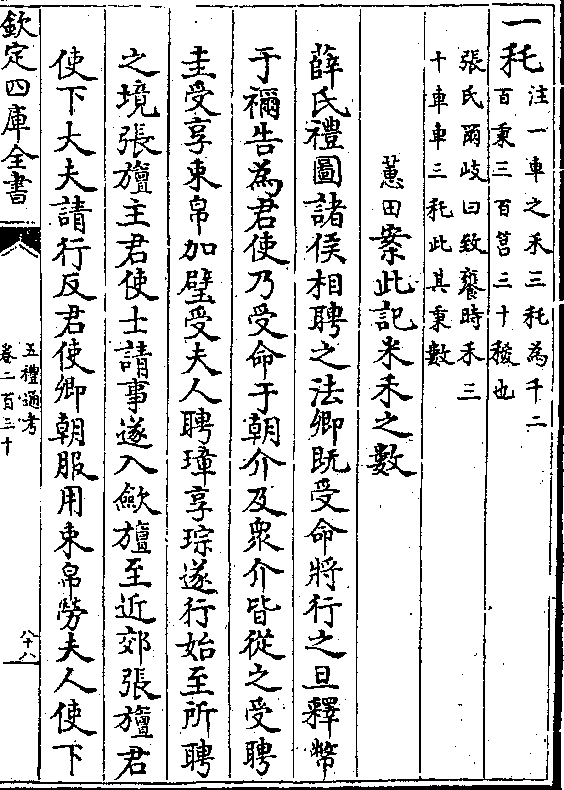 一秅注一車之禾三秅為千二
百秉三百筥三十稯也
張氏爾岐曰致饔時禾三
十車車三秅此其秉數
蕙田案此記米禾之數
薛氏禮圖諸侯相聘之法卿既受命將行之旦釋幣
于禰告為君使乃受命于朝介及衆介皆從之受聘
圭受享束帛加璧受夫人聘璋享琮遂行始至所聘
之境張旜主君使士請事遂入歛旜至近郊張旜君
使下大夫請行反君使卿朝服用束帛勞夫人使下
欽定四庫全書
五禮通考
卷二百三十
六十八